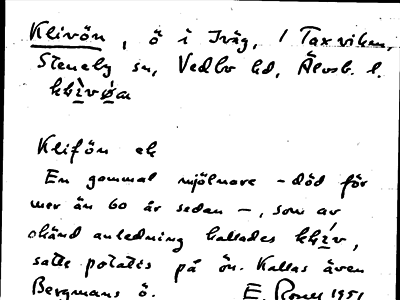 Klivön, ö i Iväg, i Taxviken,
Steneby sn, Vedbo hd, Älvsb. l.
Klifön ek
En gammal mjölnare - död för
mer än 60 år sedan -, som av
okänd anledning kallades
satte potatis på ön. Kallas även
Bergmans ö. E. 1951